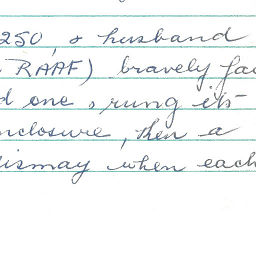 250, & husband
RAAF) bravely fac
d one, rung its
nclosure, then a
ismay when each